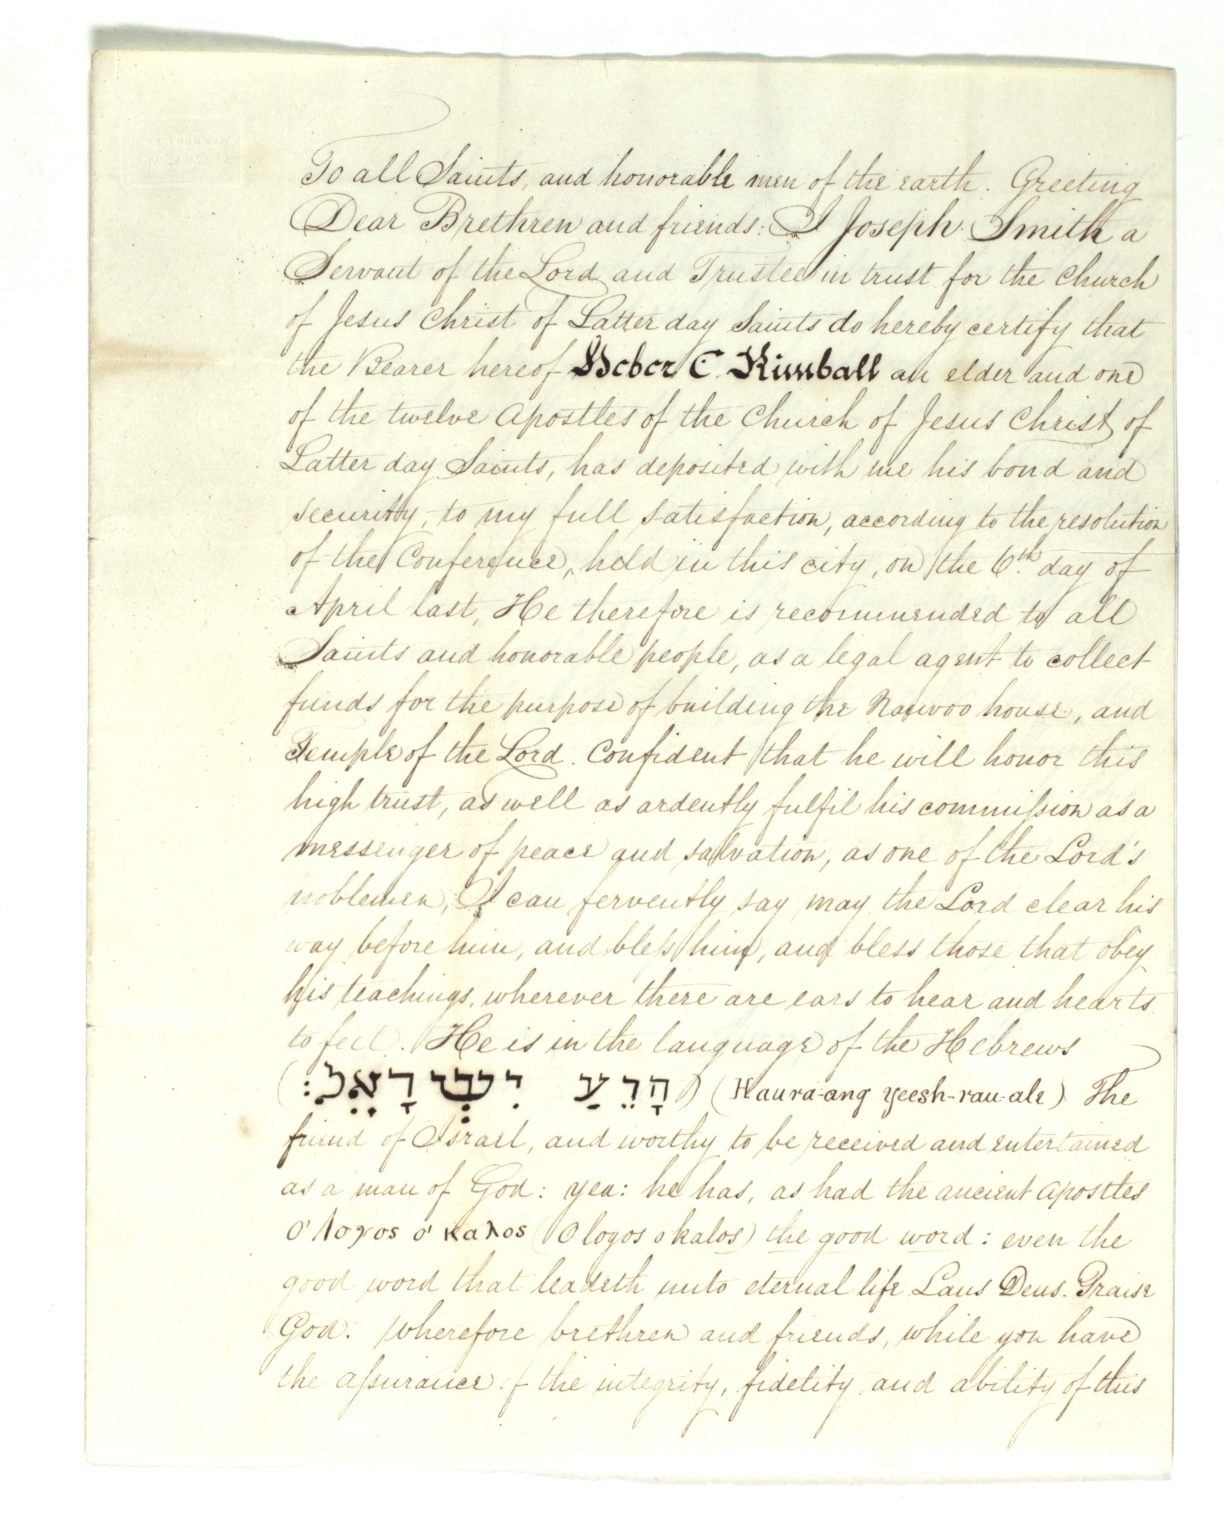 To all Saints, and honorable men of the earth. Greeting
Dear Brethren and friends: I Joseph Smith a
Servant of the Lord and Trustee in trust for the Church
of Jesus Christ of Latter day Saints do hereby certify that
the Bearer hereof Heber C. Kimball an elder and one
of the twelve Apostles of the Church of Jesus Christ of
Latter day Saints, has deposited with me his bond and
security, to my full satisfaction, according to the resolution
of the Conference, held in this city, on the 6th day of
April last, He therefore is recommended to all
Saints and honorable people, as a legal agent to collect
funds for the purpose of building the Nauvoo house, and
Temple of the Lord. Confident that he will honor this
high trust, as well as ardently fulfil his commission as a
messenger of peace and salvation, as one of the Lord's
noblemen, I can fervently say may the Lord clear his
way before him, and bless him, and bless those that obey
his teachings, wherever there are ears to hear and hearts
to feel. He is in the language of the Hebrews
(הָרֵעַ יִשְׂרָאֵל:) (Haura-ang yeesh-rau-ale) The
friend of Israel, and worthy to be received and entertained
as a man of God: yea: he has, as had the ancient apostles
ο' λογος ο' καλος (O logos o kalos) the good word: even the
good word that leadeth unto eternal life Laus Deus. Praise
God. Wherefore brethren and friends, while you have
the assurance of the integrity, fidelity, and ability of this